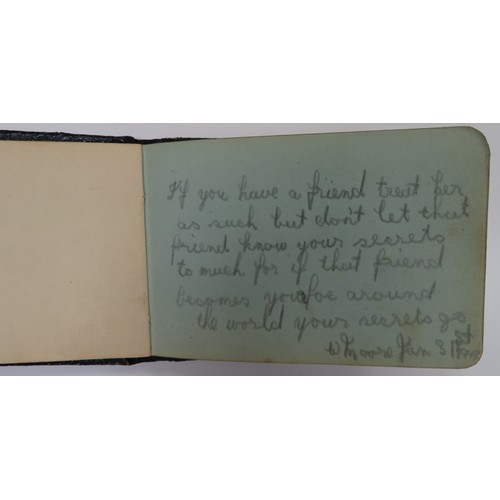 If you have a friend treat her
as such but don't let that
friend know yours secrets
to much for if that friend
becomes you foe around
the world yours secrets go
W Moore Jan 31st